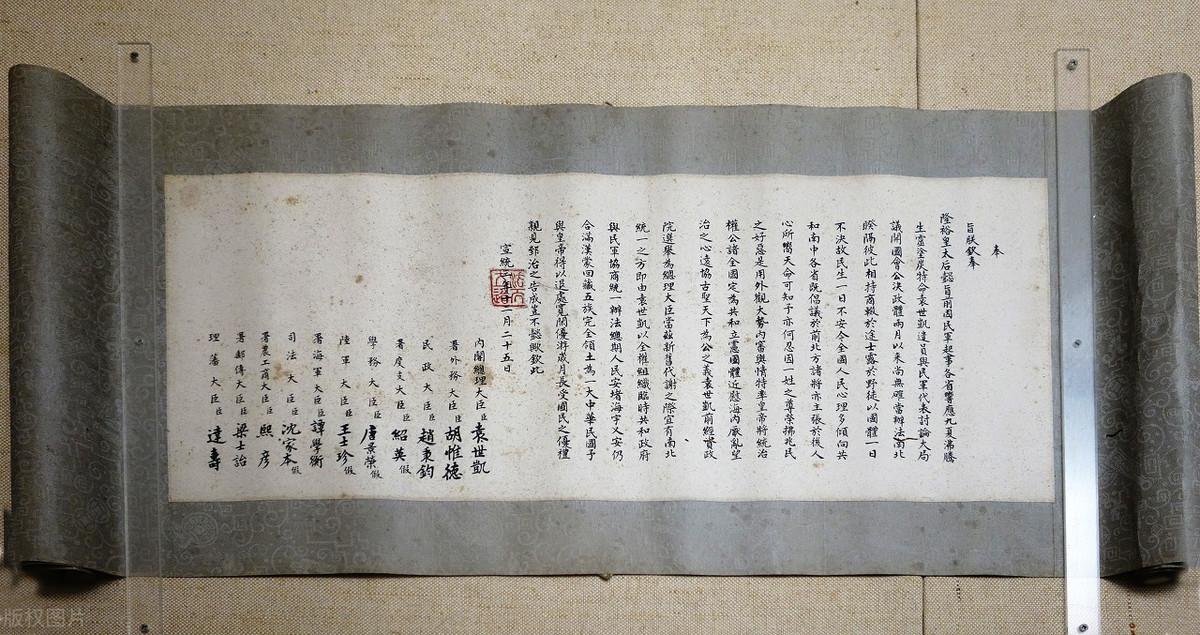 奉
旨朕欽奉
隆裕皇太后懿旨前因民軍起事各省響應九夏沸騰
生靈塗炭特命袁世凱遣員與民軍代表討論大局
議開國會公決政體兩月以來尚無確當辦法南北
暌隔彼此相持商輟於途士露於野徒以國體一日
不決故民生一日不安今全國人民心理多傾向共
和南中各省既倡議於前北方諸將亦主張於後人
心所嚮天命可知予亦何忍因一姓之尊榮拂兆民
之好惡是用外觀大勢內審輿情特率皇帝將統治
權公諸全國定為共和立憲國體近慰海內厭亂望
治之心遠協古聖天下為公之義袁世凱前經資政
院選舉為總理大臣當茲新舊代謝之際宜有南北
統一之方即由袁世凱以全權組織臨時共和政府
與民軍協商統一辦法總期人民安堵海宇乂安仍
合滿漢蒙回藏五族完全領土為一大中華民國予
與皇帝得以退處寬閒優游歲月長受國民之優禮
親見郅治之告成豈不懿歟欽此
宣統三年十二月二十五日
內閣總理大臣臣袁世凱
署外務大臣臣胡惟德
民政大臣臣趙秉鈞
署度支大臣臣紹英假
學務大臣臣唐景崇假
陸軍大臣臣王士珍假
署海軍大臣臣譚學衡
司法大臣臣沈家本假
署農工商大臣臣熙彥
署郵傳大臣臣梁士詒
理藩大臣臣達壽
版权图片